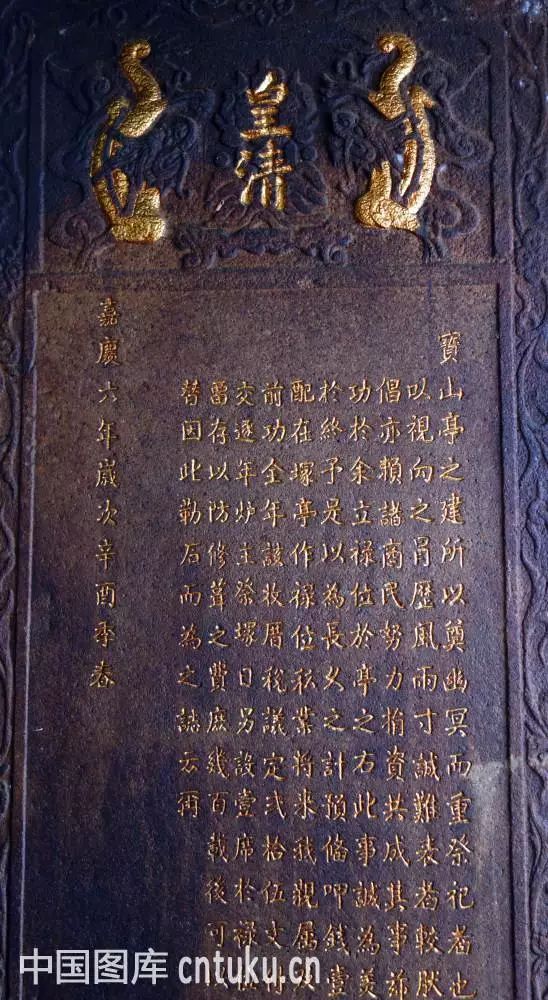 皇清
寶山亭之建所以奠幽冥而重祭祀者也
以視向之冐歷風雨寸誠難表者較
倡亦頼諸商民努力捐資共成其事茲
功於余立禄位於亭之右此事誠為美
於終予是以為長久之計預俻呷錢壹
配在塚亭作禄位私業將来我親屬
前功金年該收厝稅議定弍拾伍文
交逐年炉主祭塚日另設壹席於禄
畱存以防修葺之費庶幾百載後可
替因此勒石而為之誌云爾
嘉慶六年歲次辛酉季春
中国图库 cntuku.cn